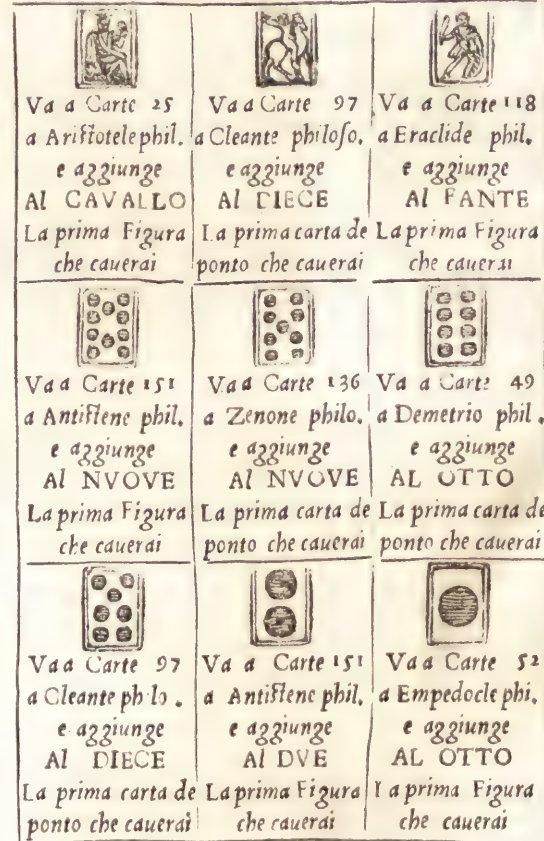 Va a Carte 25
a Ariſtotele phil.
e aggiunge
Al CAVALLO
La prima Figura
che cauerai
Va a Carte 97
a Cleante philoſo.
e aggiunge
Al DIECE
La prima carta de
ponto che cauerai
Va a Carte 118
a Eraclide phil.
e aggiunge
Al FANTE
La prima Figura
che cauerai
Va a Carte 151
a Antiſtene phil.
e aggiunge
Al NVOVE
La prima Figura
che cauerai
Va a Carte 136
a Zenone philo.
e aggiunge
Al NVOVE
La prima carta de
ponto che cauerai
Va a Carte 49
a Demetrio phil.
e aggiunge
AL OTTO
La prima carta de
ponto che cauerai
Va a Carte 97
a Cleante philo.
e aggiunge
Al DIECE
La prima carta de
ponto che cauerai
Va a Carte 151
a Antiſtene phil.
e aggiunge
Al DVE
La prima Figura
che cauerai
Va a Carte 52
a Empedocle phi.
e aggiunge
AL OTTO
La prima Figura
che cauerai